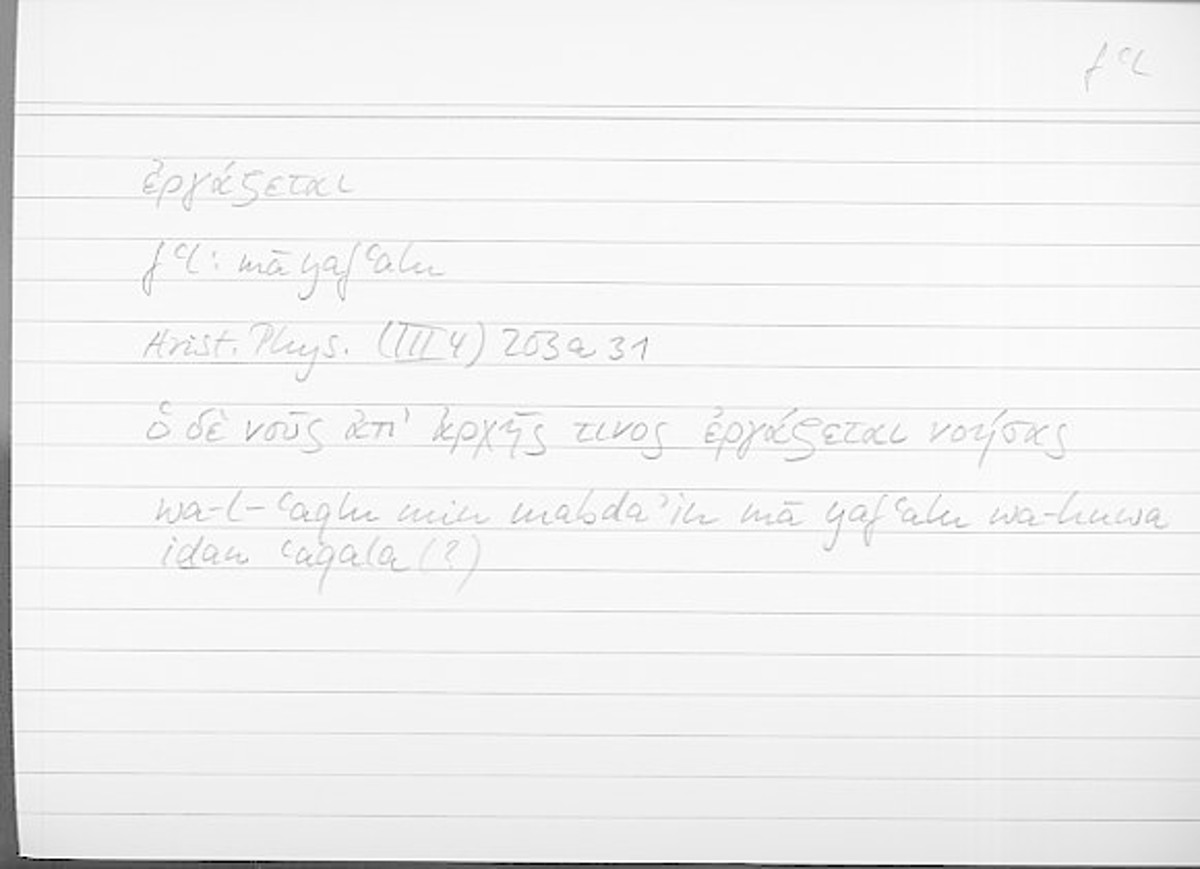 fʿl
ἐργάζεται
fʿl: mā yafʿalu
Arist. Phys. (III 4) 203 a 31
ὁ δὲ νοῦς ἀπ' ἀρχῆς τινος ἐργάζεται νοήσας
wa-l-ʿaqlu min mabdaʾin mā yafʿalu wa-huwa
iḏan ʿaqala (?)